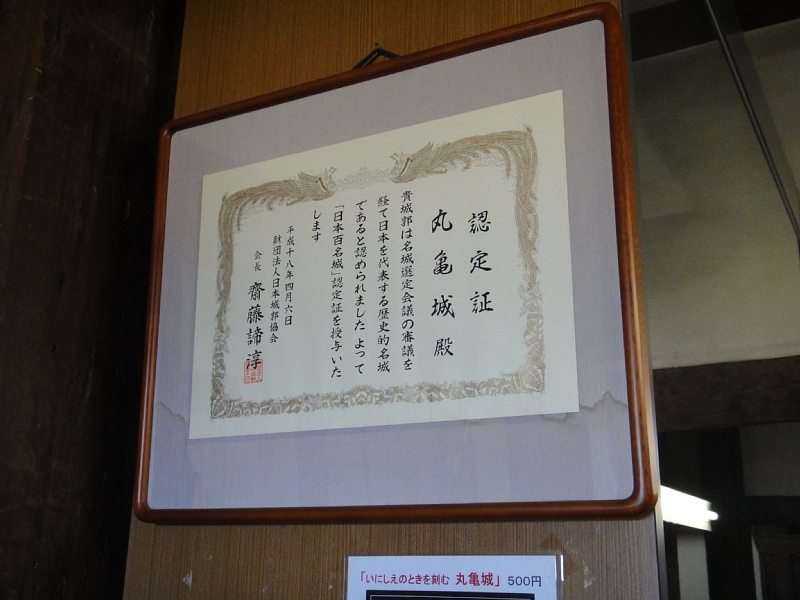 認定証
丸亀城殿
貴城郭は名城選定会議の審議を
経て日本を代表する歴史的名城
であると認められました よって
「日本百名城」認定証を授与いた
します
平成十八年四月六日
財団法人日本城郭協会
会長 齋藤諦淳
「いにしえのときを刻む 丸亀城」 500円